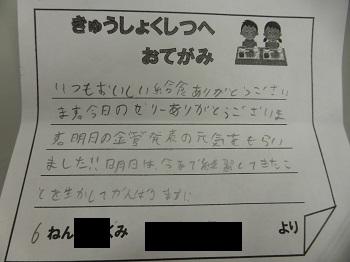 きゅうしょくしつへ
おてがみ
いつもおいしい給食ありがとうござい
ます。今日のゼリーありがとうございま
す。明日の金管発表の元気をもらい
ました!!明日は、今まで練習してきたこ
とを生かしてがんばります!
6 ねん くみ より